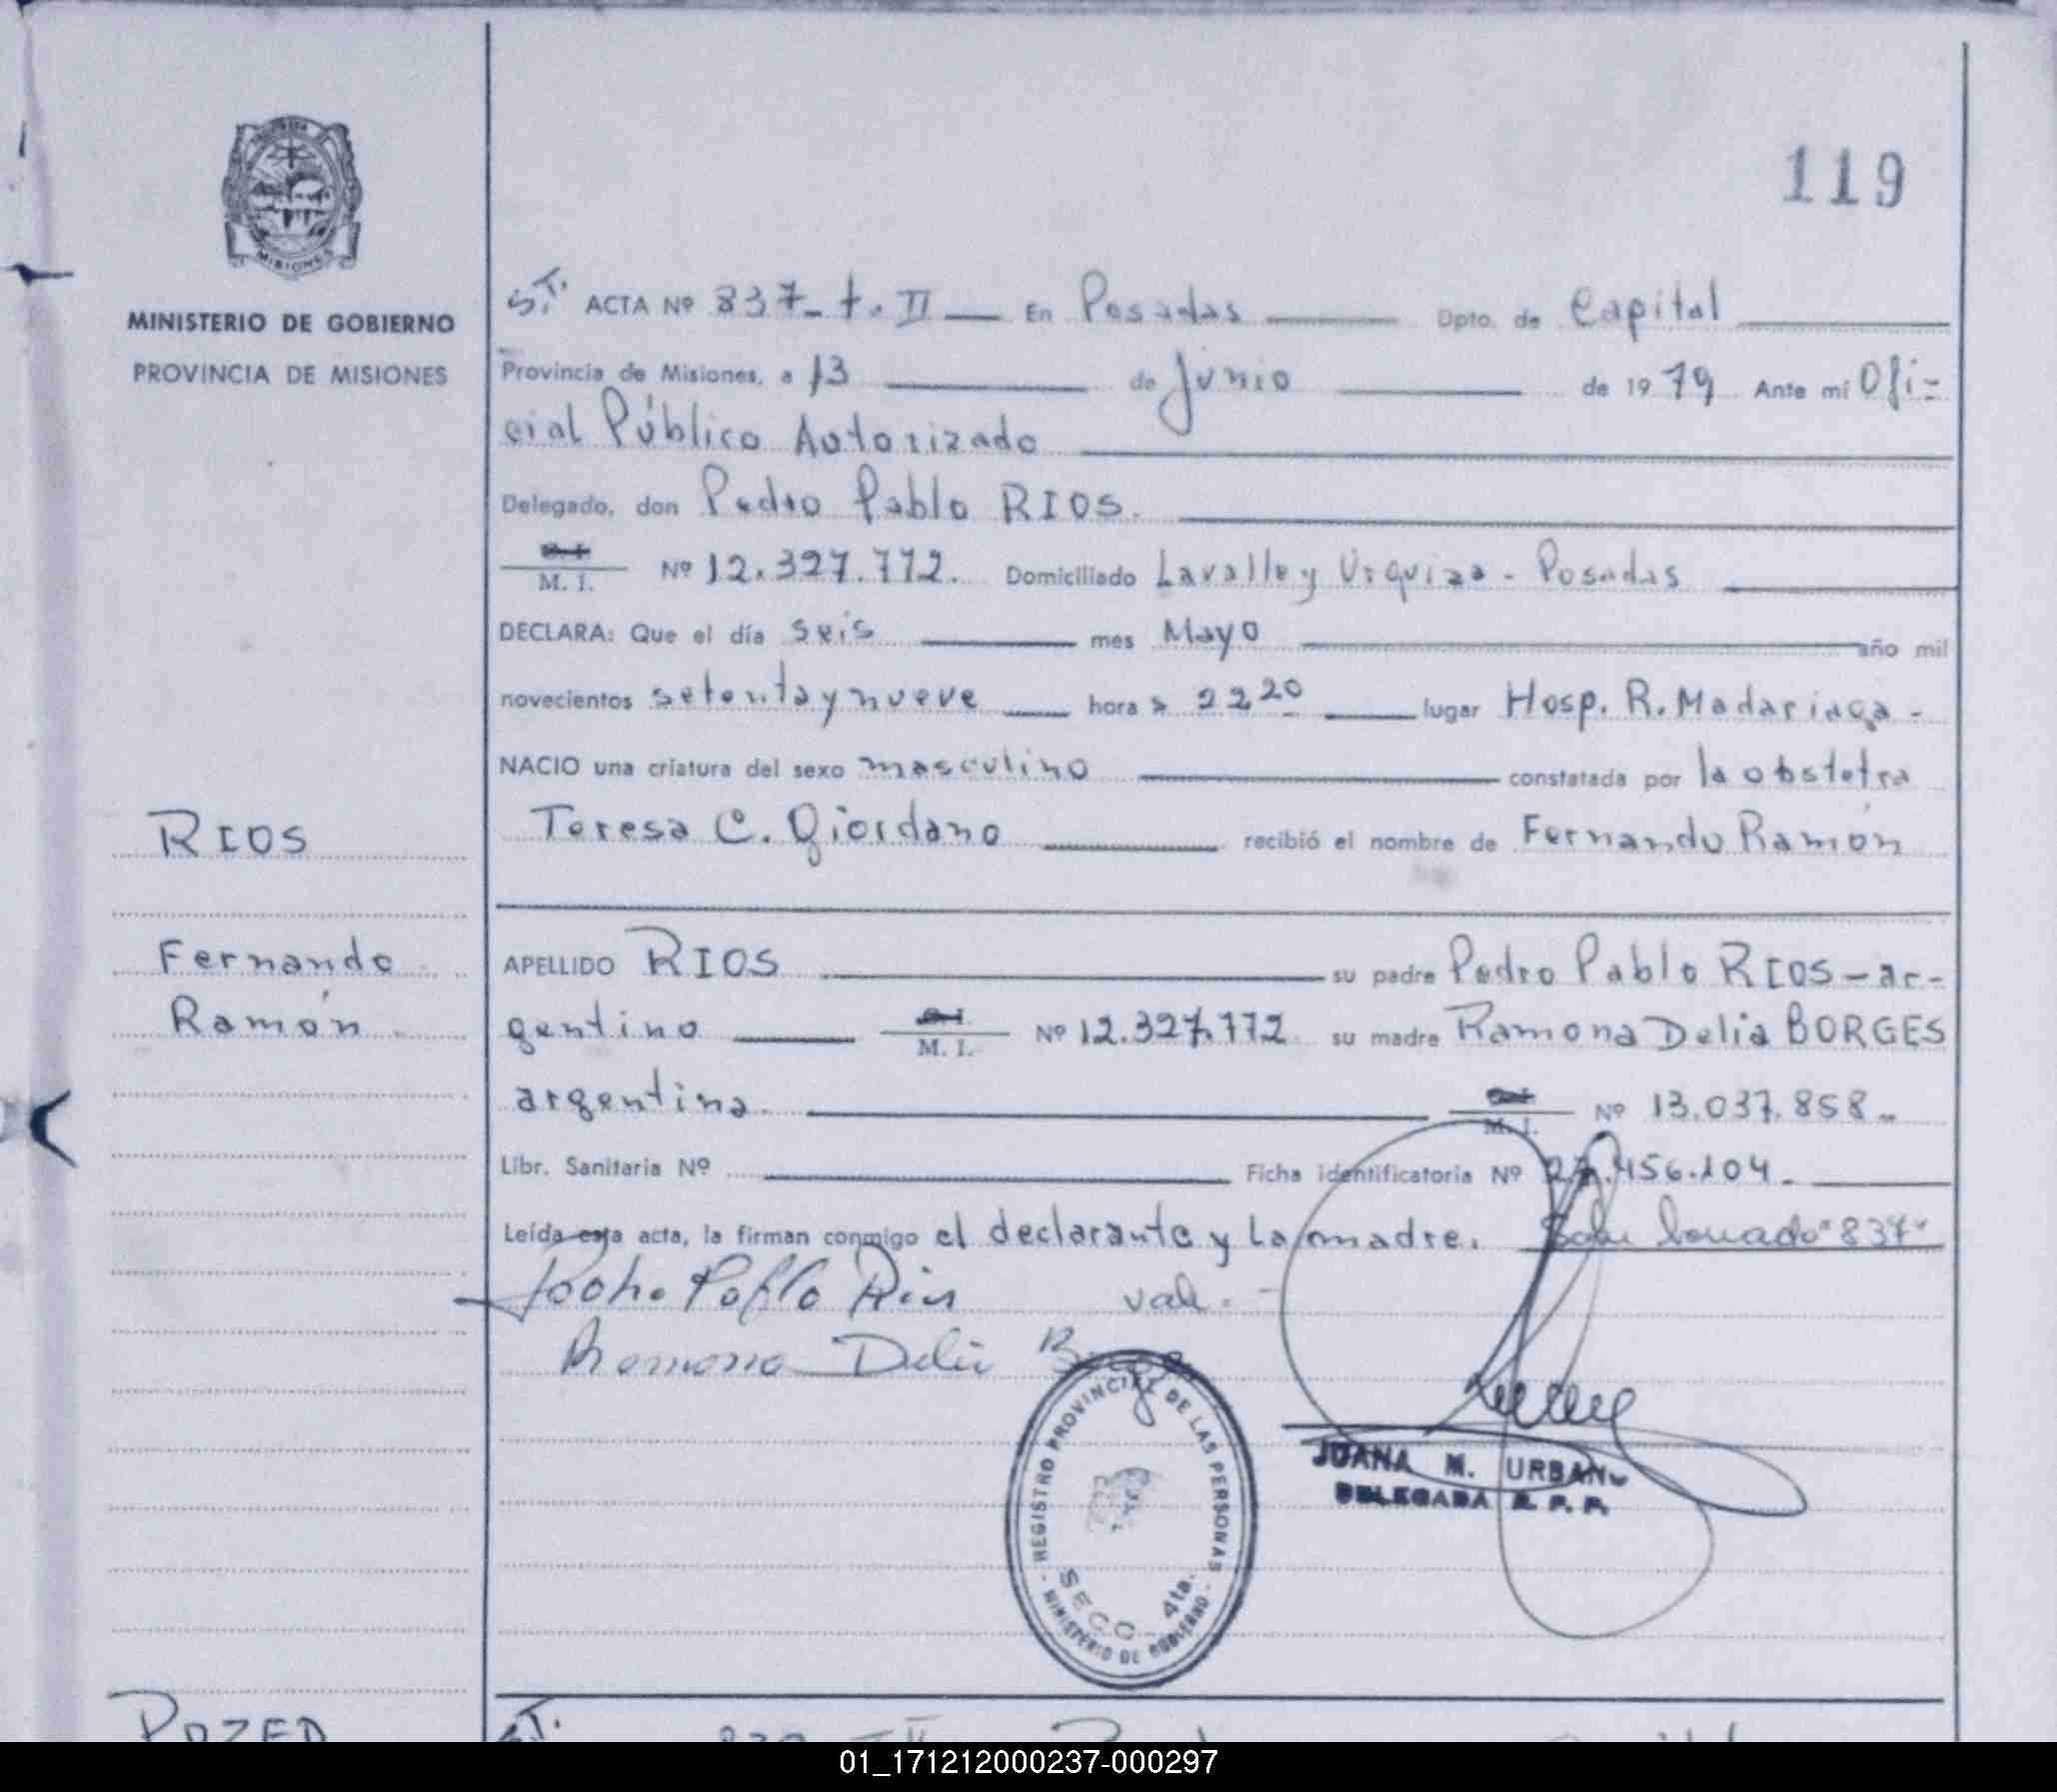 119
MINISTERIO DE GOBIERNO
PROVINCIA DE MISIONES
S.T. ACTA Nº 837- t. II En Posadas Dpto. de Capital
Provincia de Misiones, a 13 de Junio de 1979 Ante mí Ofi-
cial Público Autorizado
Delegado, don Pedro Pablo RIOS.
M. I. Nº 12.327.772. Domiciliado Lavalle y Urquiza - Posadas
DECLARA: Que el día seis mes Mayo año mil
novecientos setenta y nueve hora s 22 20 lugar Hosp. R. Madariaga -
NACIO una criatura del sexo masculino constatada por la obstetra
Teresa C. Giordano recibió el nombre de Fernando Ramón
RIOS
Fernando
Ramón
APELLIDO RIOS su padre Pedro Pablo RIOS - ar-
gentino M. I. Nº 12.327.772 su madre Ramona Delia BORGES
argentina. M. I. Nº 13.037.858-
Libr. Sanitaria Nº Ficha identificatoria Nº 27.456.104.
Leída esta acta, la firman conmigo el declarante y la madre. Sobre borrado "837"
Pedro Pablo Rios vale. -
Ramona Delia Borges
REGISTRO PROVINCIAL DE LAS PERSONAS
SECC. 4ta.
- MINISTERIO DE GOBIERNO -
JUANA M. URBAN
DELEGADA R. P. P.
S.T.
01_171212000237-000297